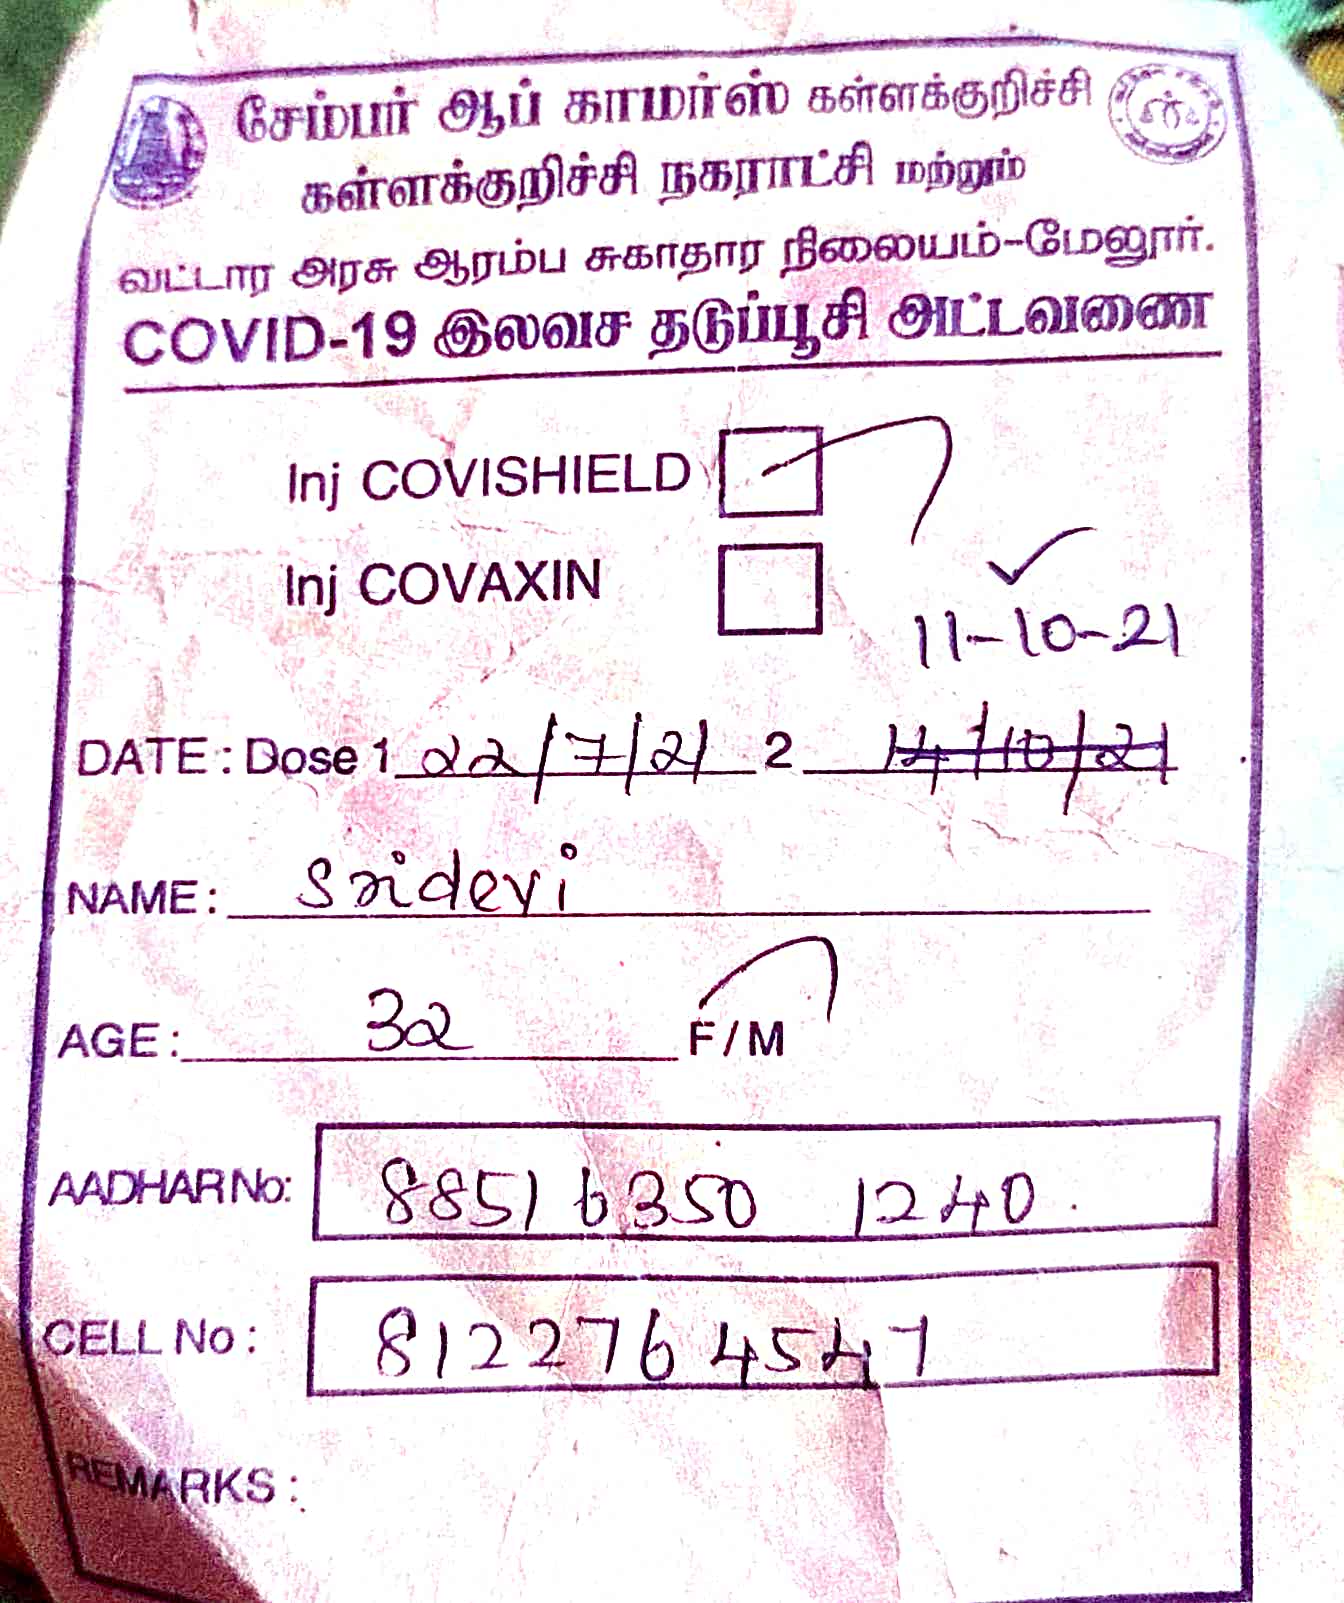 சேம்பர் ஆப் காமர்ஸ் கள்ளக்குறிச்சி
கள்ளக்குறிச்சி நகராட்சி மற்றும்
வட்டார அரசு ஆரம்ப சுகாதார நிலையம்-மேலூர்.
COVID-19 இலவச தடுப்பூசி அட்டவணை
Inj COVISHIELD
Inj COVAXIN
11-10-21
DATE : Dose 1 22/7/21 2 14/10/21
NAME : Sridevi
AGE : 32 F / M
AADHAR No: 8851 6350 1240
CELL No : 8122764547
REMARKS :